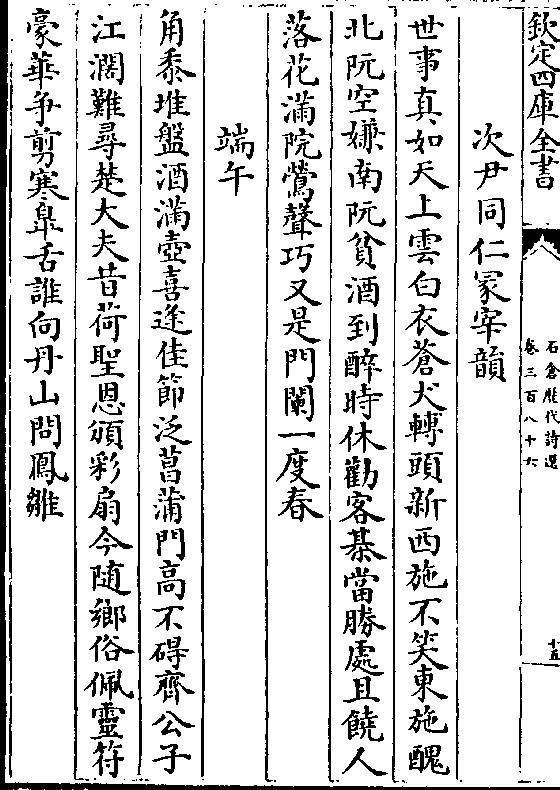 欽定四庫全書
石倉歷代詩選
卷三百八十六
十五
次尹同仁冢宰韻
世事真如天上雲白衣蒼犬轉頭新西施不笑東施醜
北阮空嫌南阮貧酒到醉時休勸客棊當勝處且饒人
落花滿院鶯聲巧又是門闌一度春
端午
角黍堆盤酒滿壺喜逢佳節泛菖蒲門高不碍齊公子
江濶難尋楚大夫昔荷聖恩頒彩扇今随鄉俗佩靈符
豪華争剪寒臯舌誰向丹山問鳳雛